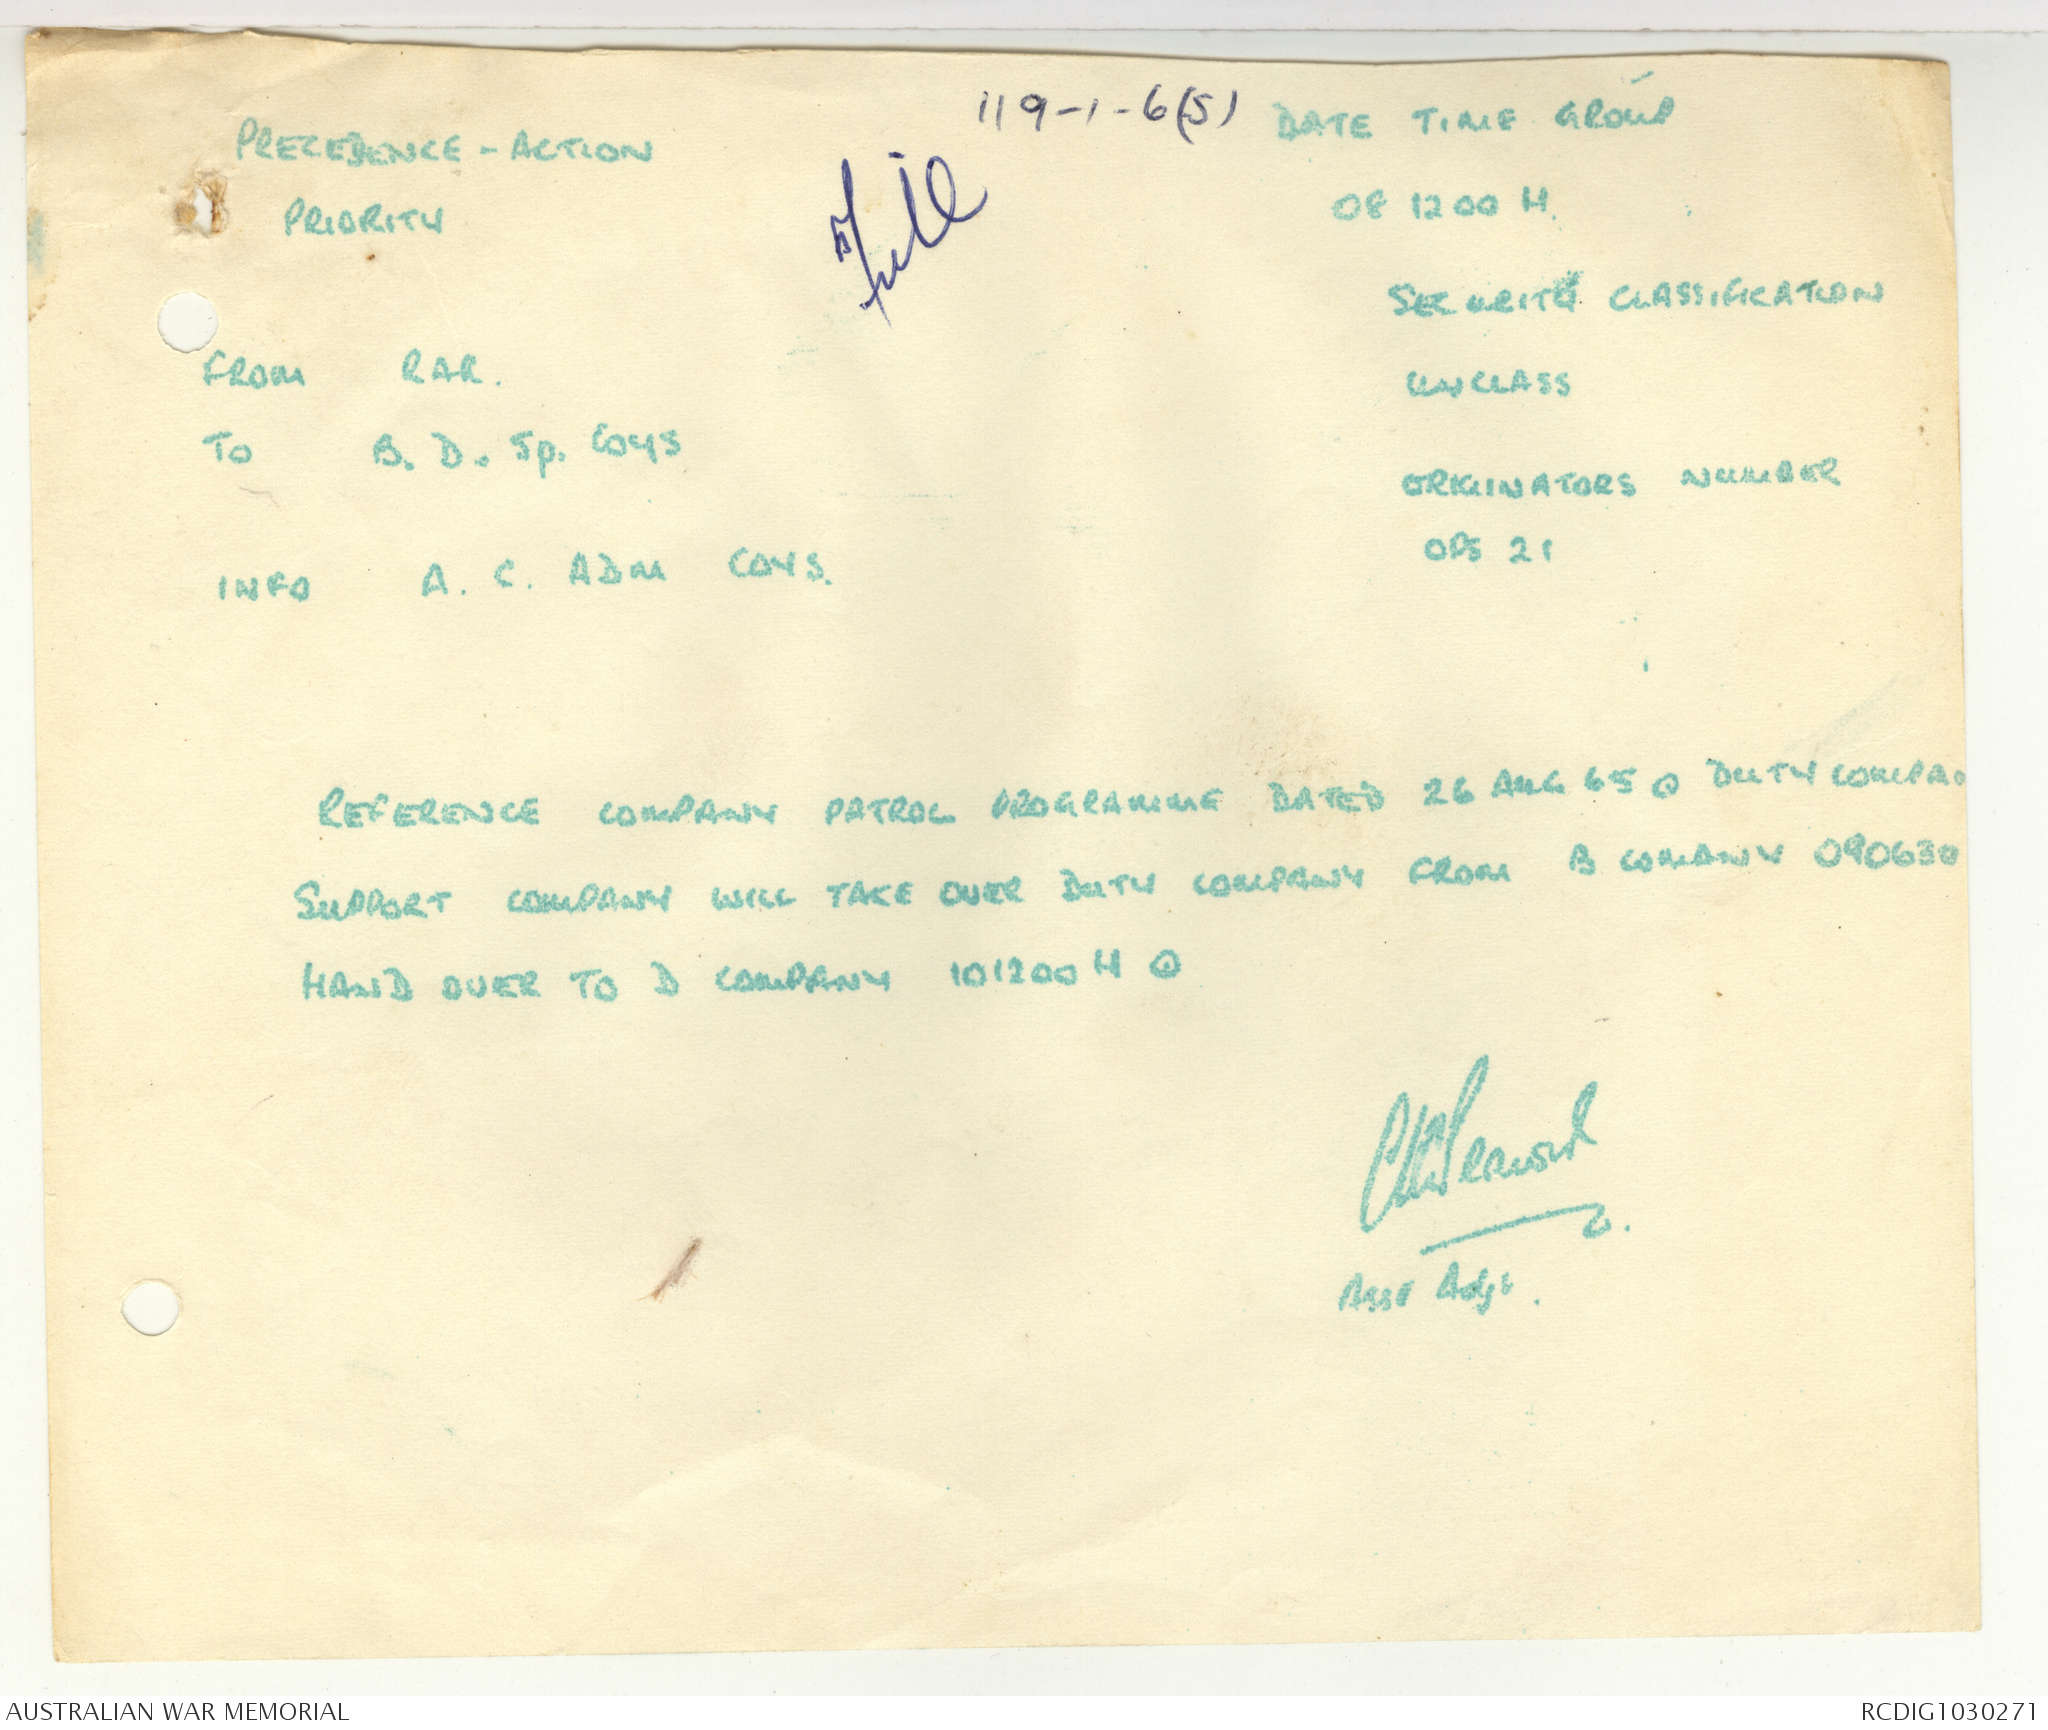 119-1-6(5)
PRECEDENCE - ACTION
PRIORITY
File
DATE TIME GROUP
08 1200 H.
SECURITY CLASSIFICATION
UNCLASS
FROM RAR.
TO B. D. Sp. Coys
ORIGINATORS NUMBER
OPS 21
INFO A. C. ADM COYS.
REFERENCE COMPANY PATROL PROGRAMME DATED 26 AUG 65 ⊙ DUTY COMPAN
SUPPORT COMPANY WILL TAKE OVER DUTY COMPANY FROM B COMANY 090630
HAND OVER TO D COMPANY 101200 H ⊙
Asst Adjt.
AUSTRALIAN WAR MEMORIAL
RCDIG1030271